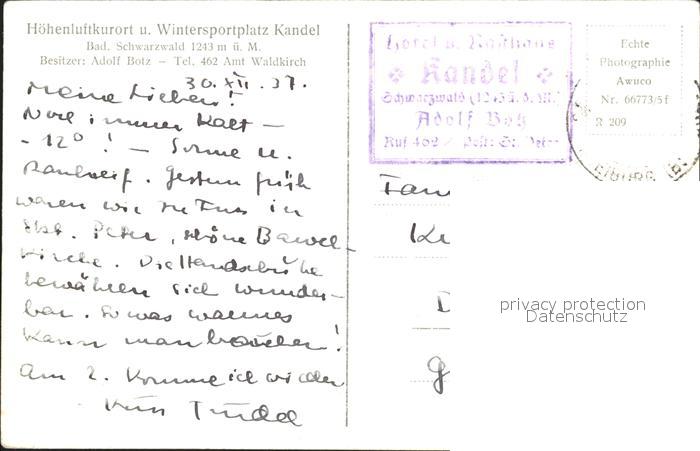 Höhenluftkurort u. Wintersportplatz Kandel
Bad. Schwarzwald 1243 m ü. M.
Besitzer: Adolf Botz – Tel. 462 Amt Waldkirch
30. XII. 37.
Meine Lieben!
Noch immer kalt –
- 12° ! – Sonne u.
Rauhreif. Gestern früh
waren wir zu Fuss in
Skt. Peter, schöne Barock-
kirche. Die Handschuhe
bewähren sich wunder-
bar. So was warmes
kann man brauchen!
Am 2. komme ich wieder
Kuss
Hotel u. Rasthaus
Kandel
Schwarzwald (1243 ü. d. M.)
Adolf Botz
Ruf 462 / Post: St. Peter
Echte
Photographie
Awuco
Nr. 66773/5f
R 209
privacy protection
Datenschutz